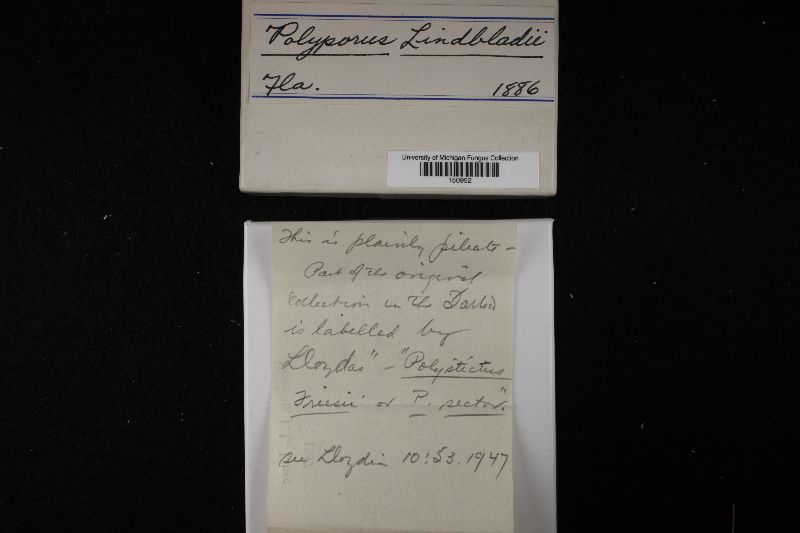 Polyporus Lindbladii
Fla. 1886
University of Michigan Fungus Collection
150952
This is plainly pileate -
Part of the original
collection in the
is labelled by
Lloyd as" - "Polystictus
Friesii or P. sector".
see Lloydia 10:53. 1947